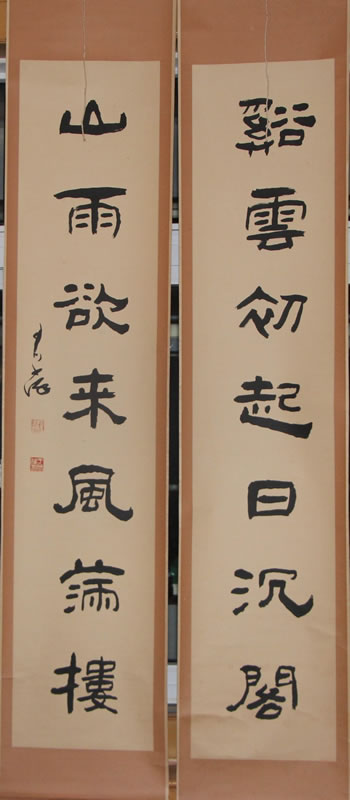 谿雲初起日沉閣
山雨欲来風満樓